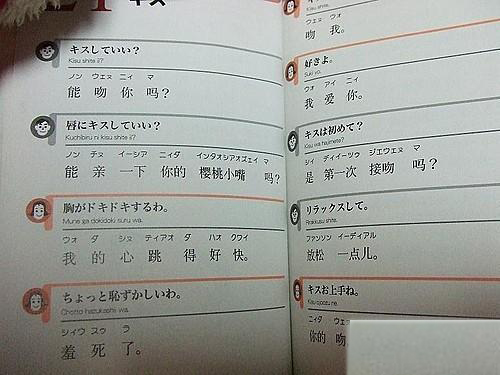 キス
キスしていい？
Kisu shite ii?
ノン ウェヌ ニィ マ
能 吻 你 吗？
唇にキスしていい？
Kuchibiru ni kisu shite ii?
ノン チヌ イーシア ニィダ インタオシアオズェイ マ
能 亲 一下 你的 樱桃小嘴 吗？
胸がドキドキするわ。
Mune ga dokidoki suru wa.
ウォ ダ シヌ ティアオ ダ ハオ クワイ
我 的 心 跳 得 好 快。
ちょっと恥ずかしいわ。
Chotto hazukashii wa.
シィウ スゥ ラ
羞 死 了。
Kisu shite.
ウェヌ ウォ
吻 我。
好きよ。
Suki yo.
ウォ アイ ニィ
我 爱 你。
キスは初めて？
Kisu wa hajimete?
シィ ディイーツゥ ジエウェヌ マ
是 第一次 接吻 吗？
リラックスして。
Rirakkusu shite.
ファンソン イーディアル
放松 一点儿。
キスお上手ね。
Kisu ojozu ne.
ニィダ ウェヌ
你的 吻